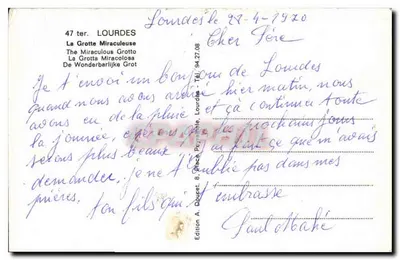 47 ter. LOURDES
La Grotte Miraculeuse
The Miraculous Grotto
La Grotta Miracolosa
De Wonderbarlijke Grot
Lourdes le 28-4-1970
Cher Père
Je t'envoi un bonjour de Lourdes
quand nous avons arrivé hier matin, nous
avons eu de la pluie et çà continue toute
la journée, les prochains jours
serons plus beaux au faite ce que m'avais
demander, je ne l'oublie pas dans mes
prières,
ton fils qui t'embrasse
Paul Mahé
Edition A. Doucet, 8, Place Lourdes - Tél. 94.27.08